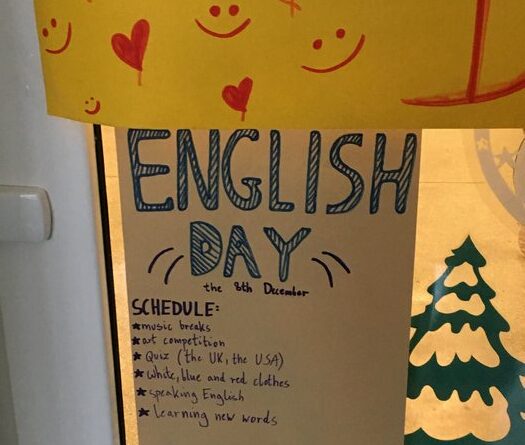 ENGLISH
DAY
the 8th December
SCHEDULE:
★music breaks
★art competition
★ Quiz (the UK, the USA)
★White, blue and red clothes
★speaking English
★ Learning new words